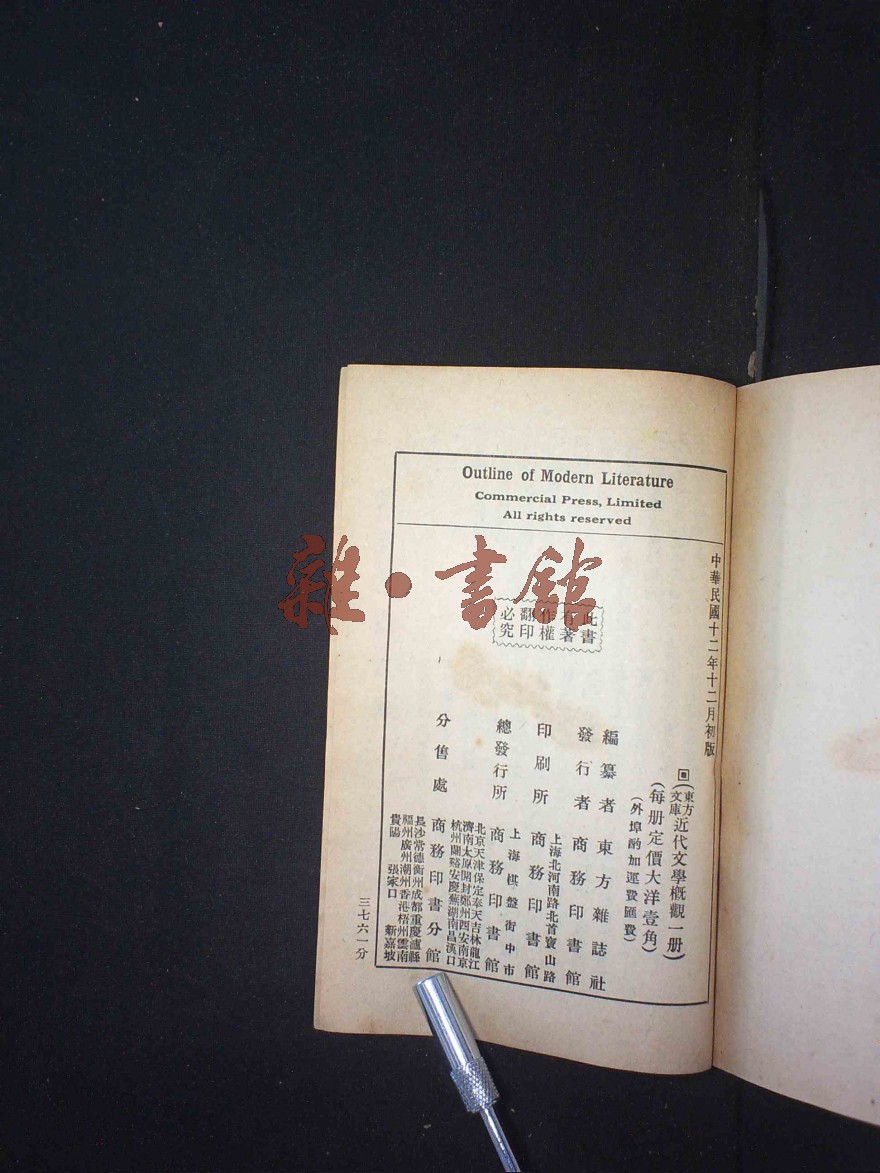 Outline of Modern Literature
Commercial Press, Limited
All rights reserved
雜·書館
此書
有著
作權
翻印
必究
中華民國十二年十二月初版
(東方文庫)近代文學概觀一册)
(每册定價大洋壹角)
(外埠酌加運費匯費)
編纂者 東方雜誌社
發行者 商務印書館
上海北河南路北首寶山路
印刷所 商務印書館
上海棋盤街中市
總發行所 商務印書館
北京天津保定奉天吉林龍江
濟南太原開封鄭州西安南京
杭州蘭谿安慶蕪湖南昌漢口
分售處 商務印書分館
長沙常德衡州成都重慶瀘縣
福州廣州潮州香港梧州雲南
貴陽 張家口 新嘉坡
三七六一分